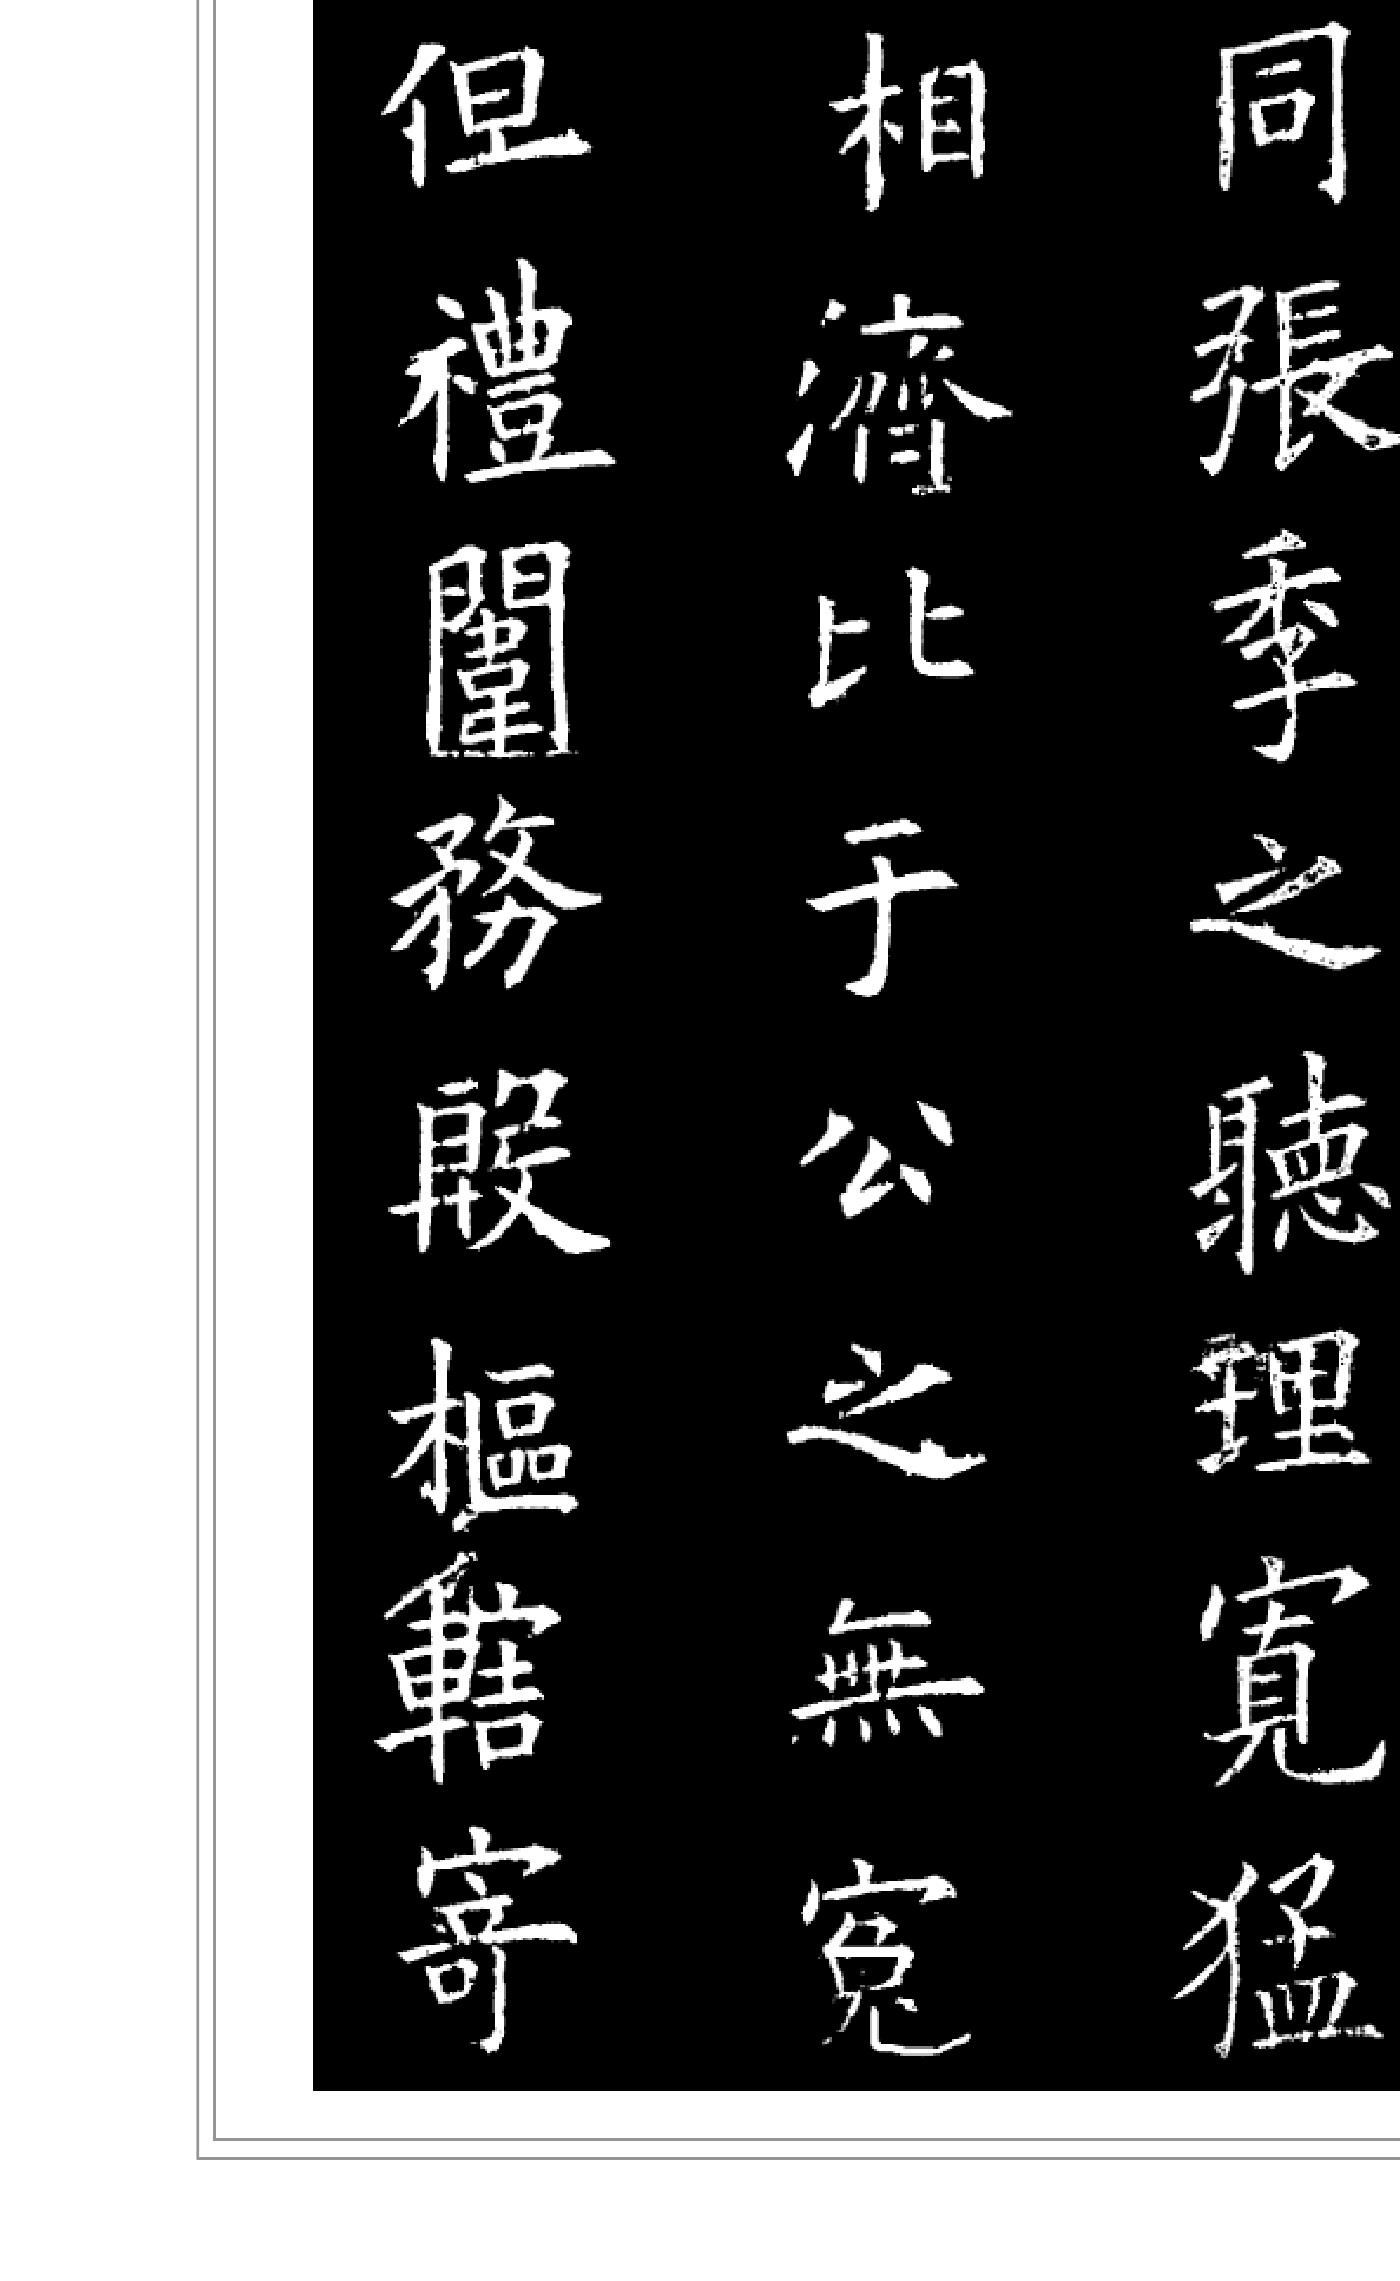 同張季之聽理寬猛
相濟比于公之無寃
但禮闈務殷樞轄寄